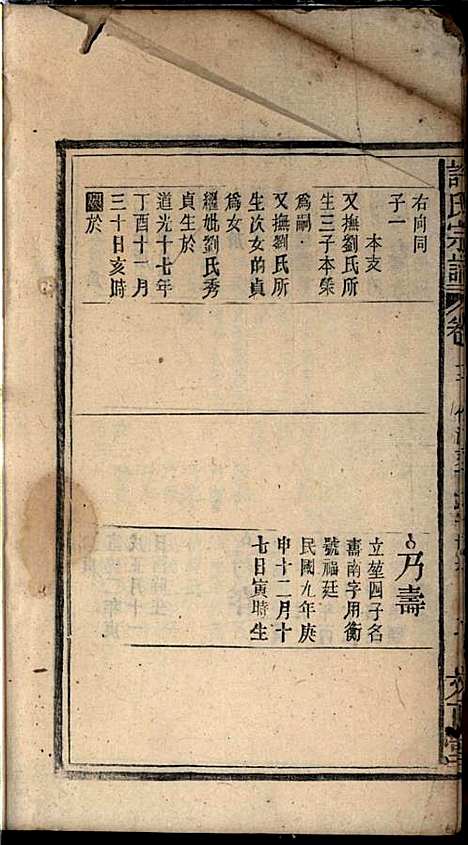 許氏宗譜
卷
右向同
子一
本支
又撫劉氏所
生三子本榮
爲嗣
又撫劉氏所
生次女的貞
爲女
繼妣劉氏秀
貞生於
道光十七年
丁酉十一月
三十日亥時
歿於
乃壽
立堃四子名
壽南字用衡
號福廷
民國九年庚
申十二月十
七日寅時生